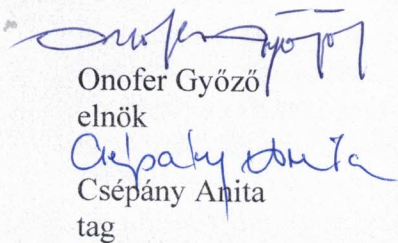 Onofer Győző
Onofer Győző
elnök
Csépány Anita
Csépány Anita
tag